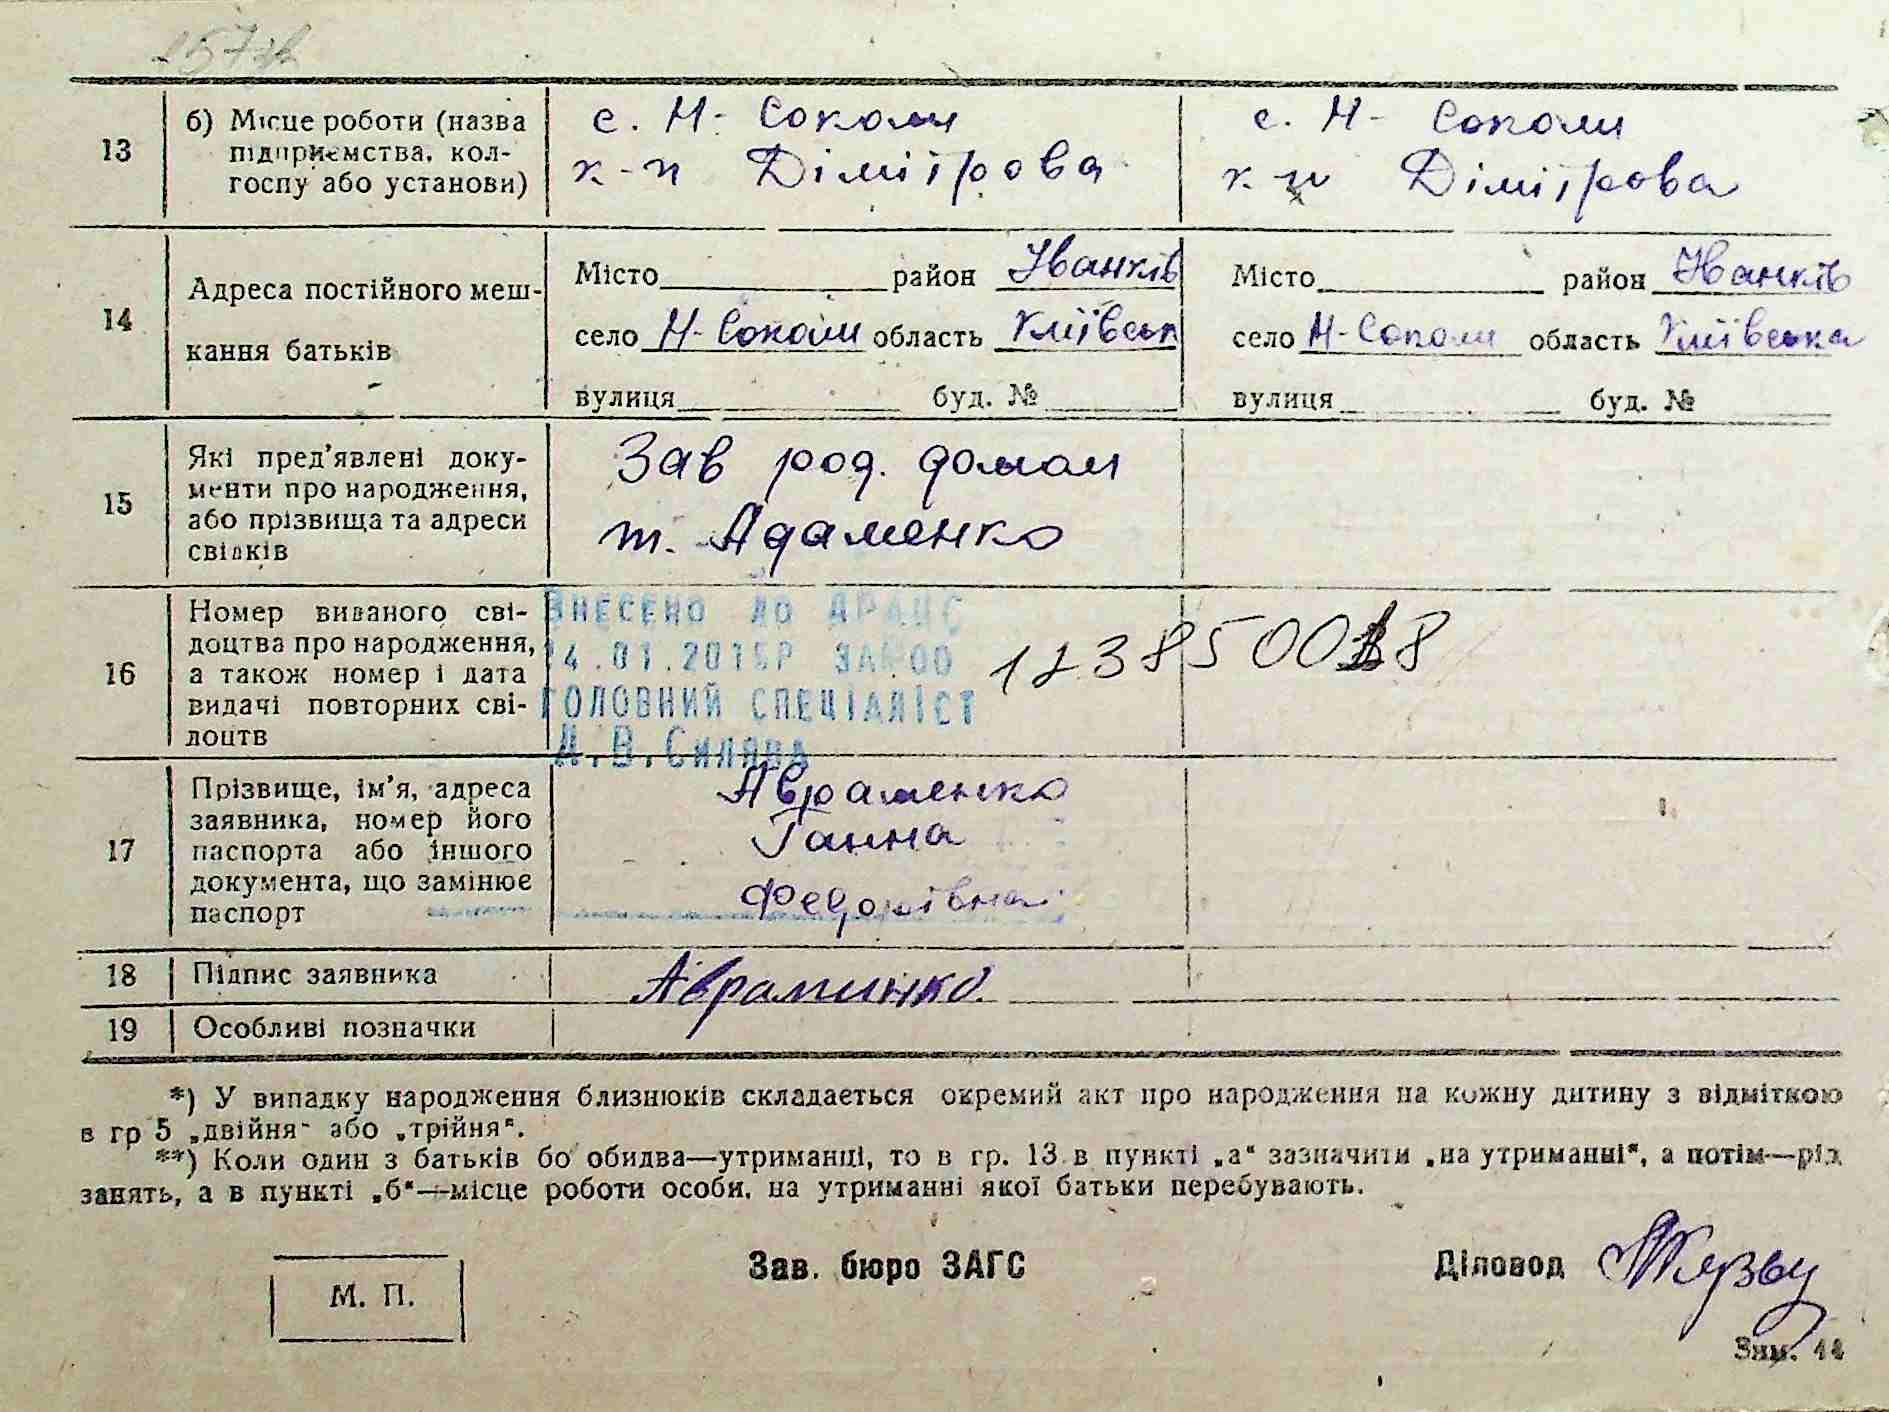 13 б) Місце роботи (назва підприємства, колгоспу або установи)
с. Н- Соколи
к-п Дімітрова
с. Н- Соколи
к-п Дімітрова
14 Адреса постійного мешкання батьків
Місто район Іванків
село Н-Соколи область Київськ
вулиця буд. №
Місто район Іванків
село Н-Соколи область Київська
вулиця буд. №
15 Які пред’явлені документи про народження, або прізвища та адреси свідків
Зав род. домом
т. Адаменко
16 Номер виданого свідоцтва про народження, а також номер і дата видачі повторних свідоцтв
ВНЕСЕНО ДО ДРАЦС
14.01.2015Р ЗА№00
123850018
ГОЛОВНИЙ СПЕЦІАЛІСТ
А.В.Силява
17 Прізвище, ім’я, адреса заявника, номер його паспорта або іншого документа, що замінює паспорт
Авраменко
Ганна
Федорівна
18 Підпис заявника
Авраминко.
19 Особливі позначки
*) У випадку народження близнюків складається окремий акт про народження на кожну дитину з відміткою
в гр 5 „двійня“ або „трійня“.
**) Коли один з батьків бо обидва—утриманці, то в гр. 13 в пункті „а“ зазначити „на утриманні“, а потім—рід
занять, а в пункті „б“—місце роботи особи, на утриманні якої батьки перебувають.
М. П.
Зав. бюро ЗАГС
Діловод
Зим. 14